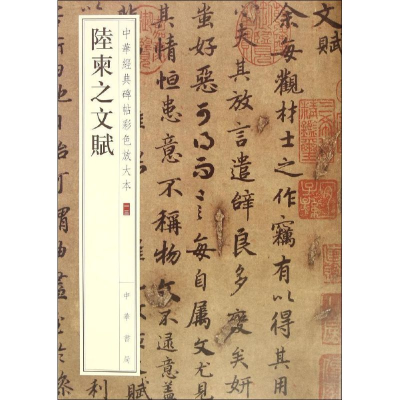 陸柬之文賦
中華經典碑帖彩色放大本
中華書局
文賦
余每觀材士之作竊有以得其
夫其放言遣辭良多變矣妍
好惡可得而言每自屬文尤見
其情恒患意不稱物文不逮意蓋